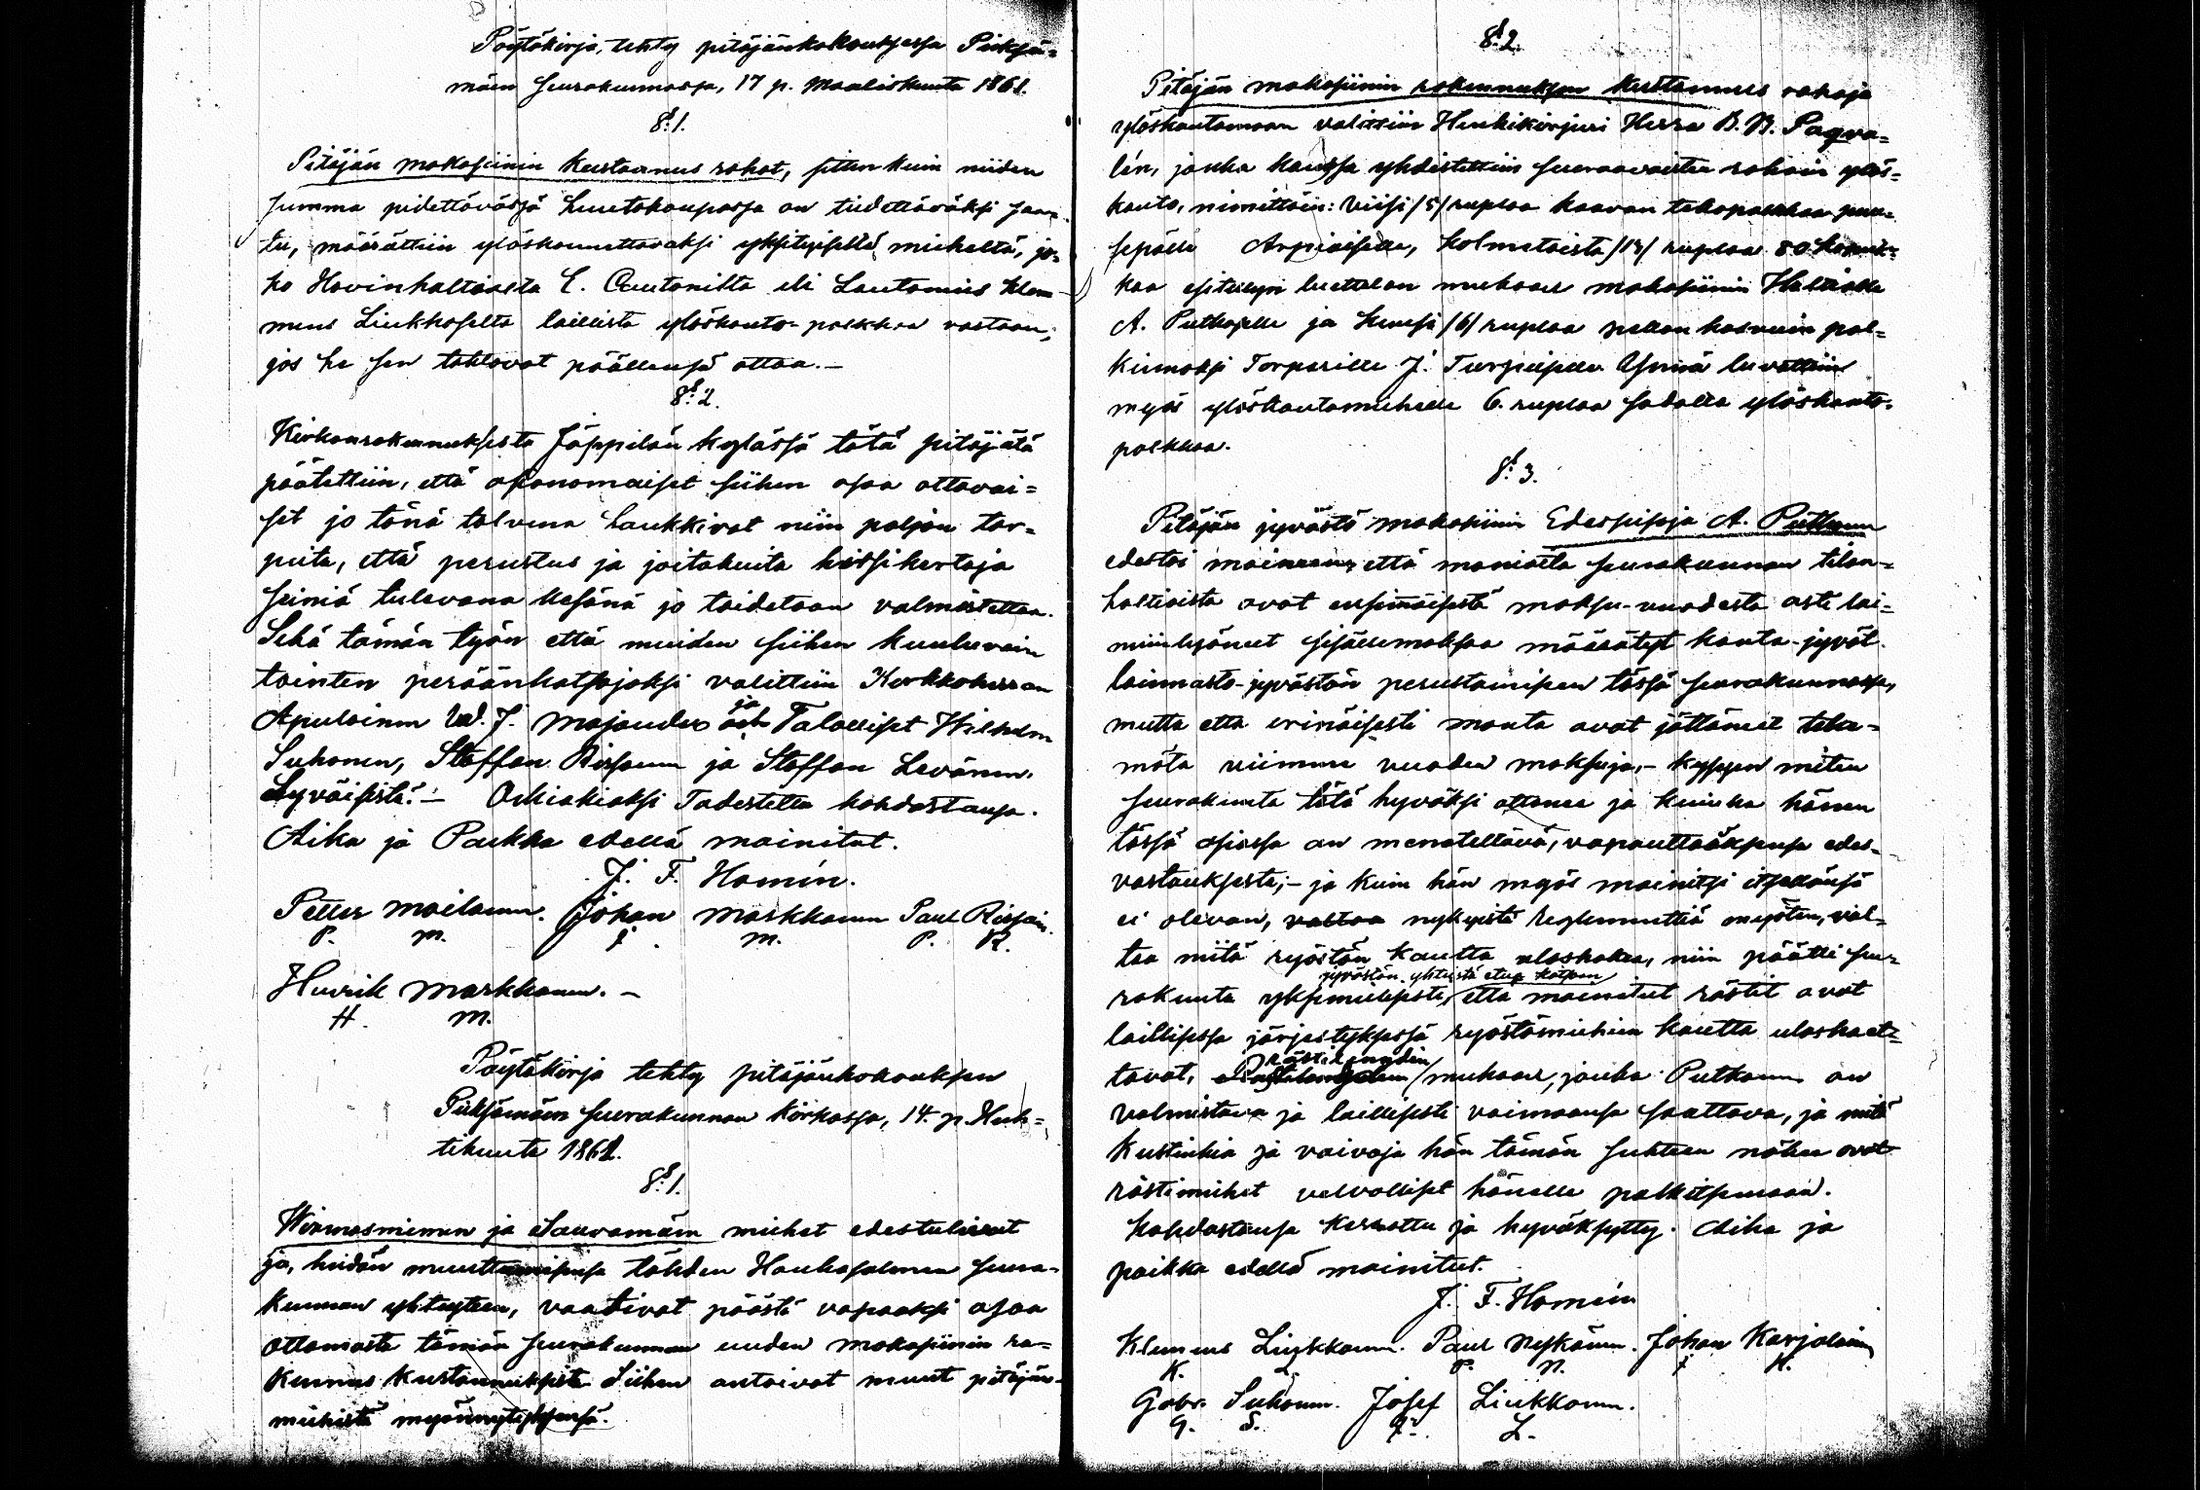 Pöytäkirja, tehty pitäjänkokouksessa Pieksä=
mäen seurakunnassa, 17 p. Maaliskuuta 1861.
§ 1.
Pitäjän makasiinin kustannus rahat, sitten kuin niiden
summa pidettävässä huutokaupassa on tiedettäväksi saa=
tu, määrättiin ylöskannettavaksi yksityisiltä miehiltä, jo=
ko Hovinhaltiasta E. Cautonilta eli Lautamies Klem=
mens Liukkoselta laillista ylöskanto-palkkaa vastaan,
jos he sen tahtovat päällensä ottaa.—
§ 2.
Kirkonrakennuksesta Jäppilän kylässä tätä pitäjätä
päätettiin, että asianomaiset siihen osaa ottavai=
set jo tänä talvena hankkivat niin paljon tar=
peita, että perustus ja joitakuita hirsikertoja
seiniä tulevana kesänä jo taidetaan valmistettaa.
Sekä tämän työn että muiden siihen kuuluvain
tointen peräänkatsojaksi valittiin Kirkkoherran
Apulainen Vd. J. Majander ja och Talolliset Wilhelm
Suhonen, Staffan Rissanen ja Staffan Levänen
Syväisistä.— Oikiaksi Todestetta kohdastansa.
Aika ja Paikka edellä mainitut.
J. F. Homén.
Petter Moilanen. Johan Markkanen Paul Rissain.
P. M. J. M. P. R.
Henrik Markkanen.—
H. M.
Pöytäkirja tehty pitäjänkokouksen
Pieksämäen seurakunnan kirkossa, 14. p. Huh=
tikuuta 1861.
§ 1.
Wirmasniemen ja Sauvamäen miehet edestulivat
ja, heidän muuttamisensa tähden Haukasalmen seura=
kunnan yhteyteen, vaativat päästä vapaaksi osaa
ottamasta tämän seurakunnan uuden makasiinin ra=
kennus kustannuksista. Siihen antoivat muut pitäjän
miehistä myönnytyksensä.
§ 2.
Pitäjän makasiinin rakennuksen kustannus rahoja
ylöskantamaan valittiin Henkikirjuri Herra B. B. Fagva=
lén, jonka kanssa yhdistettiin seuraavaisten rahain ylös=
kanto, nimittäin: Viisi /5/ ruplaa kaavan tekopalkkaa puu=
sepälle Arpiaiselle, kolmetoista /13/ ruplaa 80 kopeek=
kaa esitetyn luettelon mukaan makasiinin Haltialle
A. Putkoselle ja kuusi /6/ ruplaa pellon kasvuin pal=
kinnoksi Torparille J. Turpeiselle. Ynnä luvattiin
myös ylöskantomiehelle 6. ruplaa sadalta ylöskanto=
palkkaa.
§ 3.
Pitäjän jyvästö makasiinin Edesseisoja A. Putkonen
edestoi mainiten, että moniaita seurakunnan tilan=
haltioista ovat ensimäisestä maksu-vuodesta asti lai=
minlyöneet sisällemaksaa määrätyt kanta-jyvät
lainmasto-jyvästön perustamiseen tässä seurakunnassa,
mutta että erinäisesti monta ovat jättäneet teke=
mätä viimme vuoden maksuja,— kysyen miten
seurakunta tätä hyväksi ottanee ja kuinka hänen
tässä asiassa on menateltävä, vapauttaaksensa edes=
vastauksesta;— ja kuin hän myös mainitsi itsellänsä
ei olevan, vastaa nykyistä Reglementtiä myöten, val=
taa mitä ryöstön kautta uloshakea, niin päätti seu=
jyvästön yhteistä etua katsoen
rakunta yksimielisesti, että mainitut rästit ovat
laillisessa järjestyksessä ryöstömiehien kautta uloshaet=
rästilengdin
tavat, mukaan, jonka Putkonen on
valmistava ja laillisesti voimaansa saattava, ja mitä
kustinkia ja vaivoja hän tämän suhteen näkee ovat
rästimiehet velvolliset hänelle palkitsemaan.
Kohdastansa kerrottu ja hyväksytty. Aika ja
paikka edellä mainitut.
J. F. Homén
Klemens Liukkonen. Paul Nykänen. Johan Karjalain
K. L. P. N. J. K.
Gabr. Suhonen. Josef Liukkonen.
G. S. J. L.